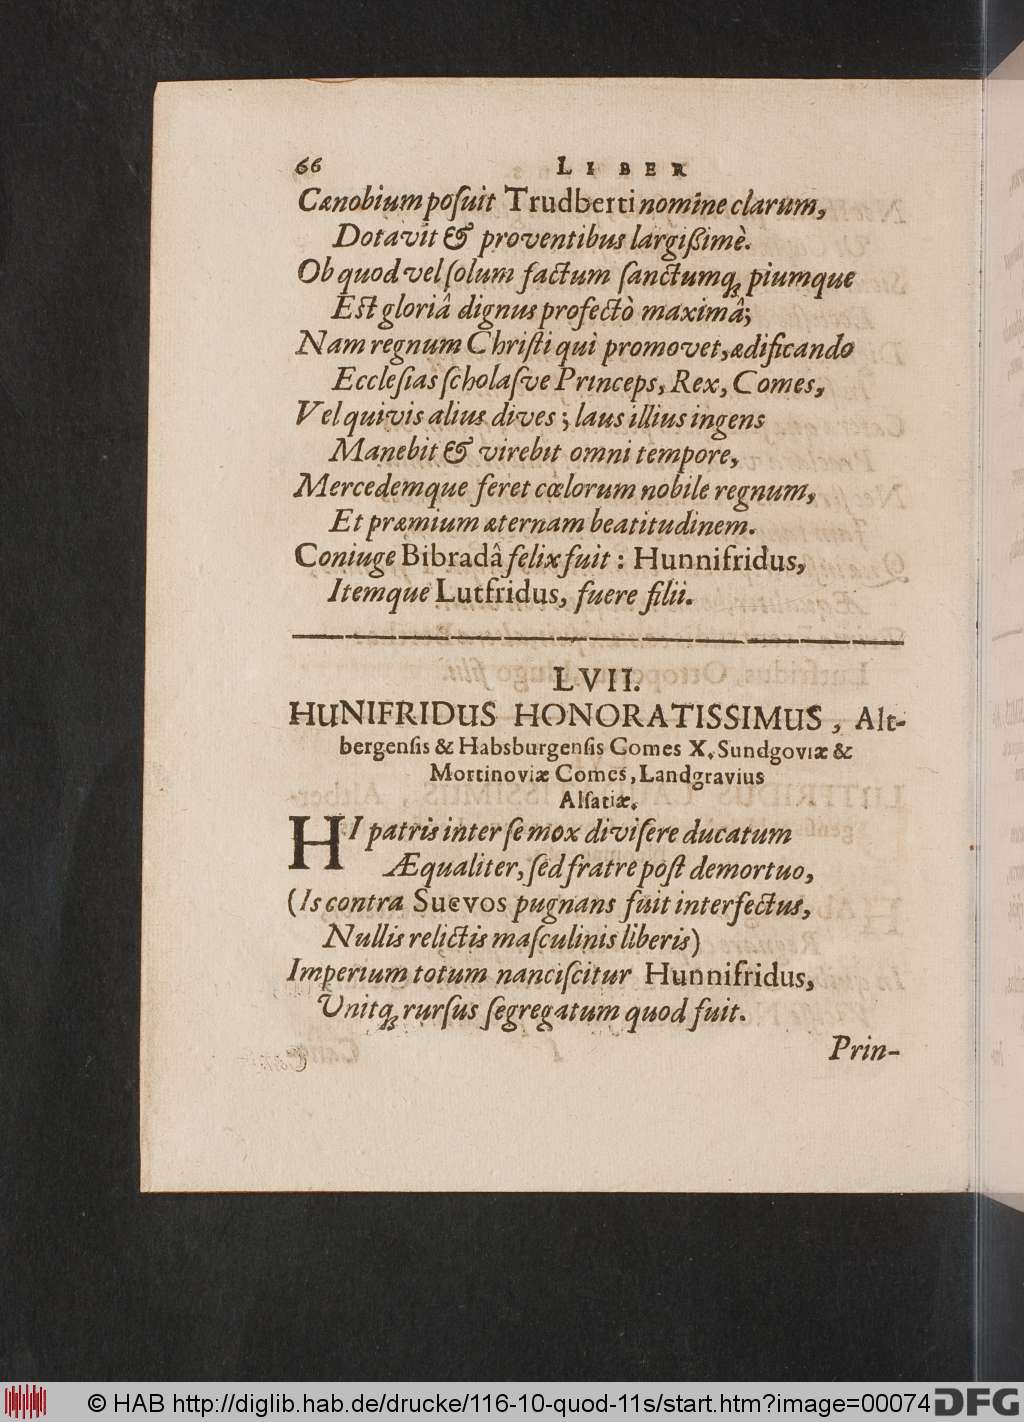 66 LIBER
Cænobium posuit Trudberti nomine clarum,
Dotavit & proventibus largißimè.
Ob quod vel solum factum sanctumq; piumque
Est gloriâ dignus profectò maximâ;
Nam regnum Christi quì promovet, ædificando
Ecclesias scholasve Princeps, Rex, Comes,
Vel quivis alius dives; laus illius ingens
Manebit & virebit omni tempore,
Mercedemque feret cœlorum nobile regnum,
Et præmium æternam beatitudinem.
Coniuge Bibradâ felix fuit: Hunnifridus,
Itemque Lutfridus, fuere filii.
LVII.
HUNIFRIDUS HONORATISSIMUS, Alt-
bergensis & Habsburgensis Comes X. Sundgoviæ &
Mortinoviæ Comes, Landgravius
Alsatiæ.
HI patris inter se mox divisere ducatum
Æqualiter, sed fratre post demortuo,
(Is contra Suevos pugnans fuit interfectus,
Nullis relictis masculinis liberis)
Imperium totum nanciscitur Hunnifridus,
Unitq; rursus segregatum quod fuit.
Prin-
© HAB http://diglib.hab.de/drucke/116-10-quod-11s/start.htm?image=00074
DFG